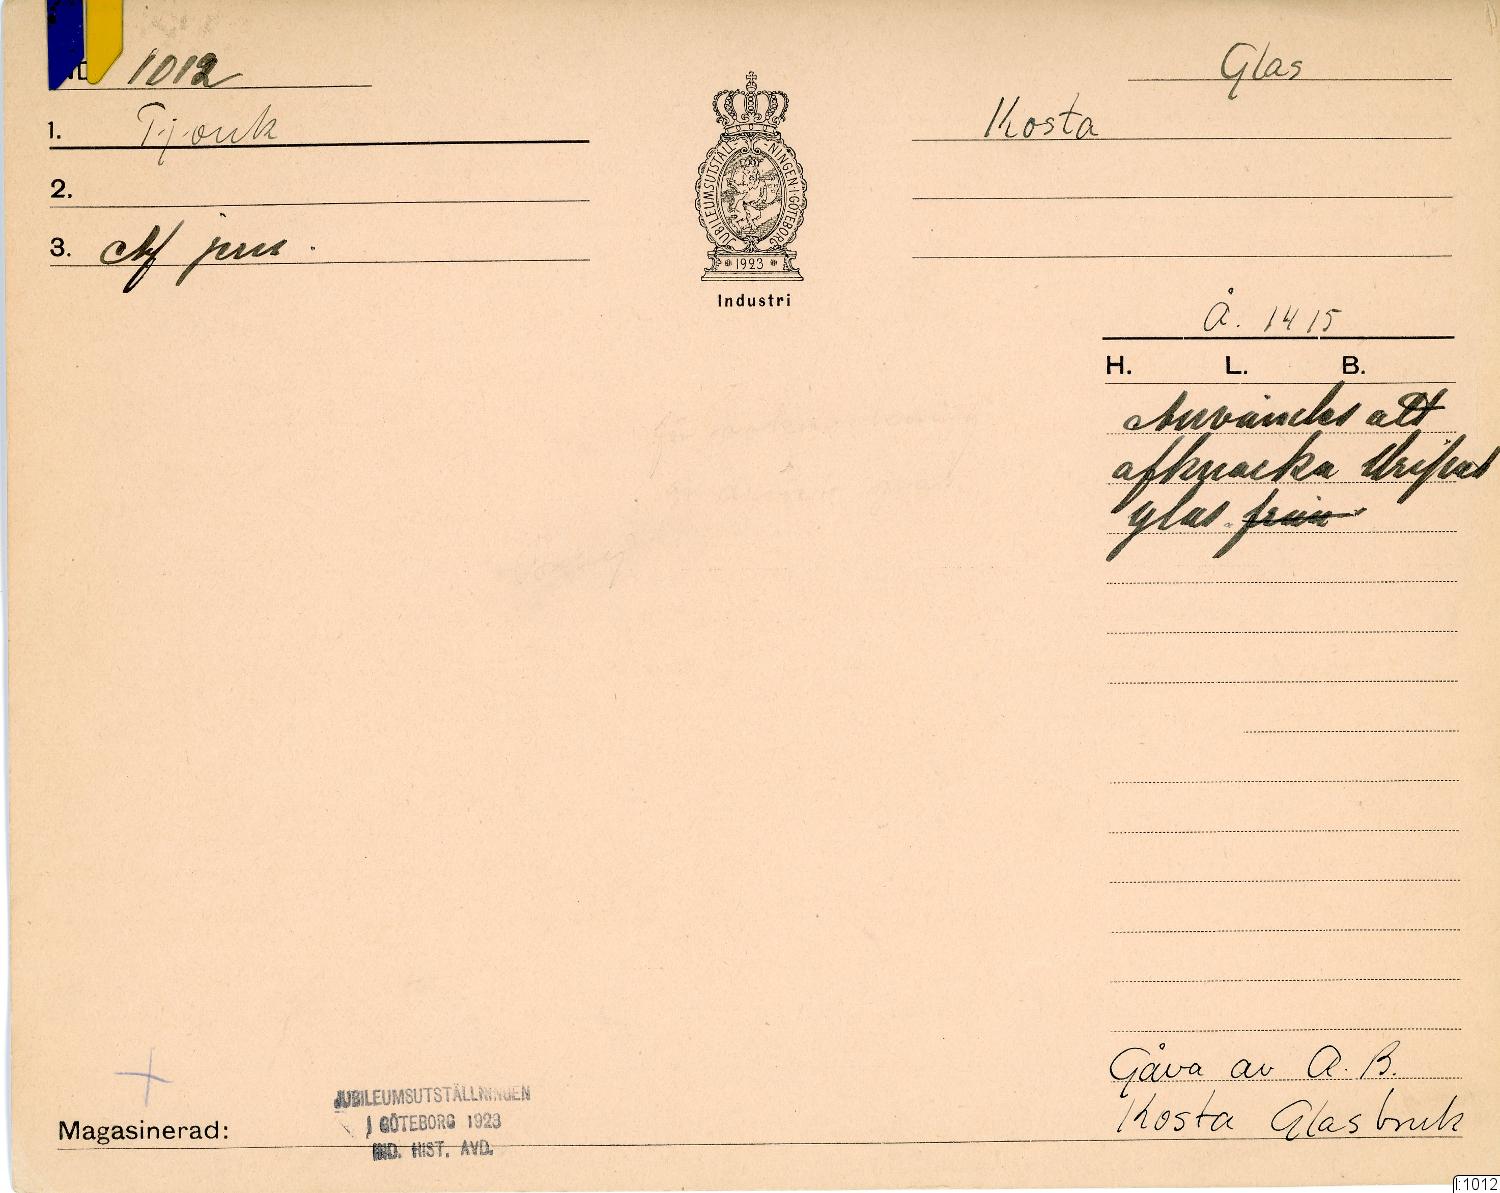 1012
Glas
1. Tjonk
Kosta
2.
3. Af jern.
JUBILEUMSUTSTÄLLNINGEN I GÖTEBORG
1923
Industri
Å. 1415
H. L. B.
Användes att
afknacka
glas från
Gåva av A. B.
Kosta Glasbruk
JUBILEUMSUTSTÄLLNINGEN
I GÖTEBORG 1923
IND. HIST. AVD.
Magasinerad:
I:1012